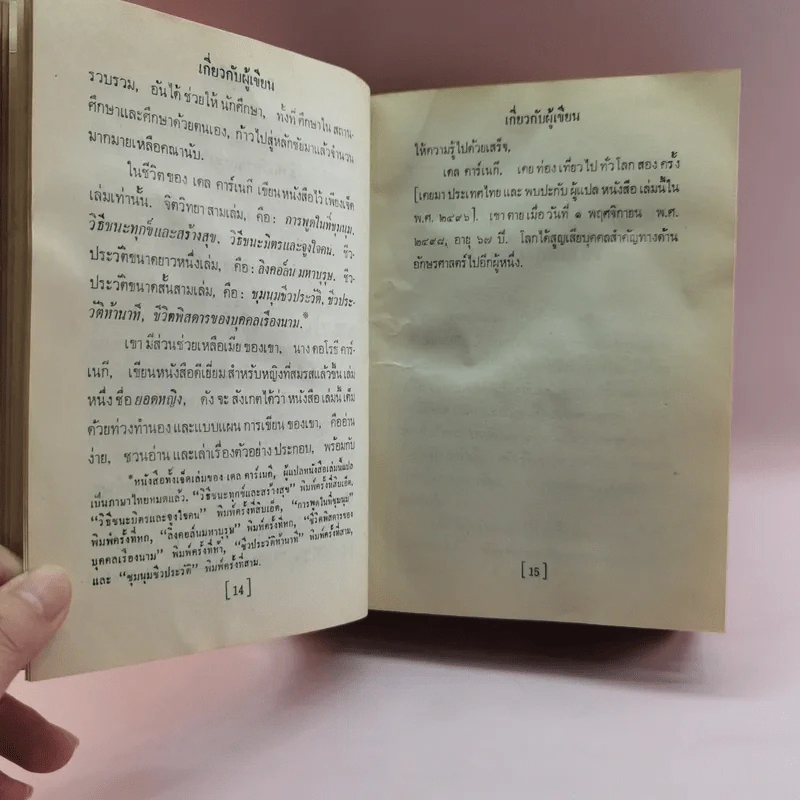 เกี่ยวกับผู้เขียน
รวบรวม, อันได้ ช่วยให้ นักศึกษา, ทั้งที่ ศึกษาใน สถาน-
ศึกษาและศึกษาด้วยตนเอง, ก้าวไปสู่หลักชัยมาแล้วจำนวน
มากมายเหลือคณานับ.
ในชีวิตของ เดล คาร์เนกี เขียนหนังสือไว้ เพียงเจ็ด
เล่มเท่านั้น. จิตวิทยา สามเล่ม, คือ: การพูดในที่ชุมนุม,
วิธีชนะทุกข์และสร้างสุข, วิธีชนะมิตรและจูงใจคน. ชีว-
ประวัติขนาดยาวหนึ่งเล่ม, คือ: ลิงคอล์น มหาบุรุษ. ชีว-
ประวัติขนาดสั้นสามเล่ม, คือ: ชุมนุมชีวประวัติ, ชีวประ-
วัติห้านาที, ชีวิตพิสดารของบุคคลเรืองนาม.*
เขา มีส่วนช่วยเหลือเมีย ของเขา, นาง ดอโรธี คาร์-
เนกี, เขียนหนังสือดีเยี่ยม สำหรับหญิงที่สมรสแล้วขึ้น เล่ม
หนึ่ง ชื่อ ยอดหญิง, ดัง จะ สังเกตได้ว่า หนังสือ เล่มนี้ เต็ม
ด้วยท่วงทำนอง และแบบแผน การเขียน ของเขา, คืออ่าน
ง่าย, ชวนอ่าน และเล่าเรื่องตัวอย่าง ประกอบ, พร้อมกับ
*หนังสือทั้งเจ็ดเล่มของ เดล คาร์เนกี, ผู้แปลหนังสือเล่มนี้แปล
เป็นภาษาไทยหมดแล้ว. "วิธีชนะทุกข์และสร้างสุข" พิมพ์ครั้งที่สิบเอ็ด,
"วิธีชนะมิตรและจูงใจคน" พิมพ์ครั้งที่สิบเอ็ด, "การพูดในที่ชุมนุม"
พิมพ์ครั้งที่หก, "ลิงคอล์นมหาบุรุษ" พิมพ์ครั้งที่หก, "ชีวิตพิสดารของ
บุคคลเรืองนาม" พิมพ์ครั้งที่ห้า, "ชีวประวัติห้านาที" พิมพ์ครั้งที่สาม,
และ "ชุมนุมชีวประวัติ" พิมพ์ครั้งที่สาม.
[14]
เกี่ยวกับผู้เขียน
ให้ความรู้ไปด้วยเสร็จ.
เดล คาร์เนกี, เคย ท่อง เที่ยว ไป ทั่ว โลก สอง ครั้ง
[เคยมา ประเทศไทย และ พบปะกับ ผู้แปล หนังสือ เล่มนี้ ใน
พ.ศ. ๒๔๙๖]. เขา ตาย เมื่อ วันที่ ๑ พฤศจิกายน พ.ศ.
๒๔๙๘, อายุ ๖๗ ปี. โลกได้สูญเสียบุคคลสำคัญทางด้าน
อักษรศาสตร์ ไปอีกผู้หนึ่ง.
[15]